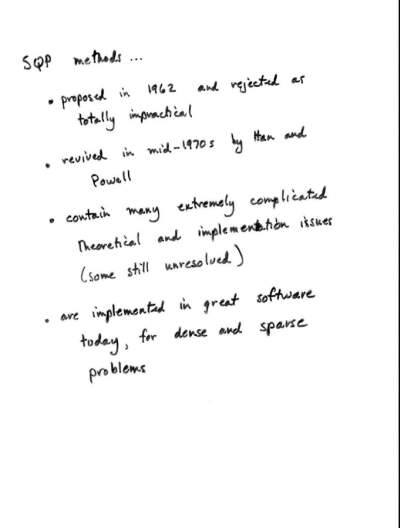 SQP methods ...
• proposed in 1962 and rejected as
totally impractical
• revived in mid-1970s by Han and
Powell
• contain many extremely complicated
theoretical and implementation issues
(some still unresolved)
• are implemented in great software
today, for dense and sparse
problems